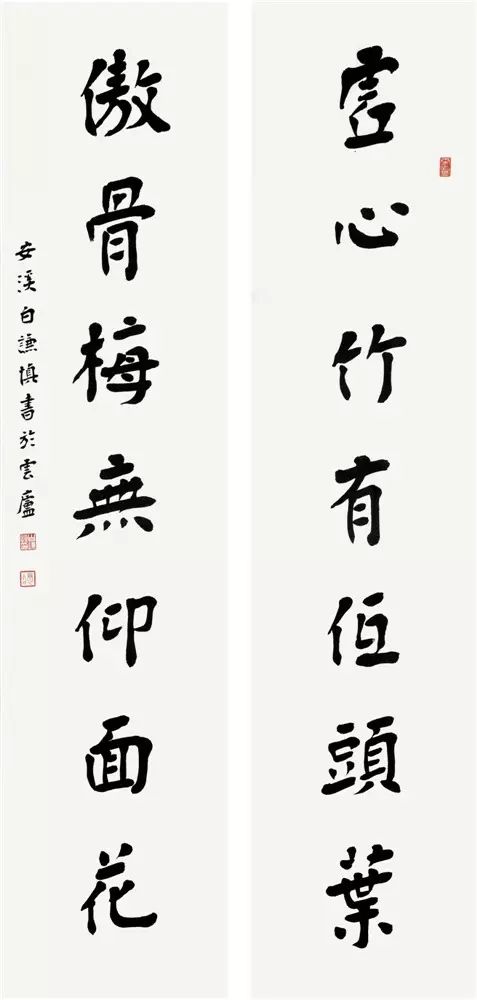 虛心竹有低頭葉
傲骨梅無仰面花
安溪白謙慎書於雲廬